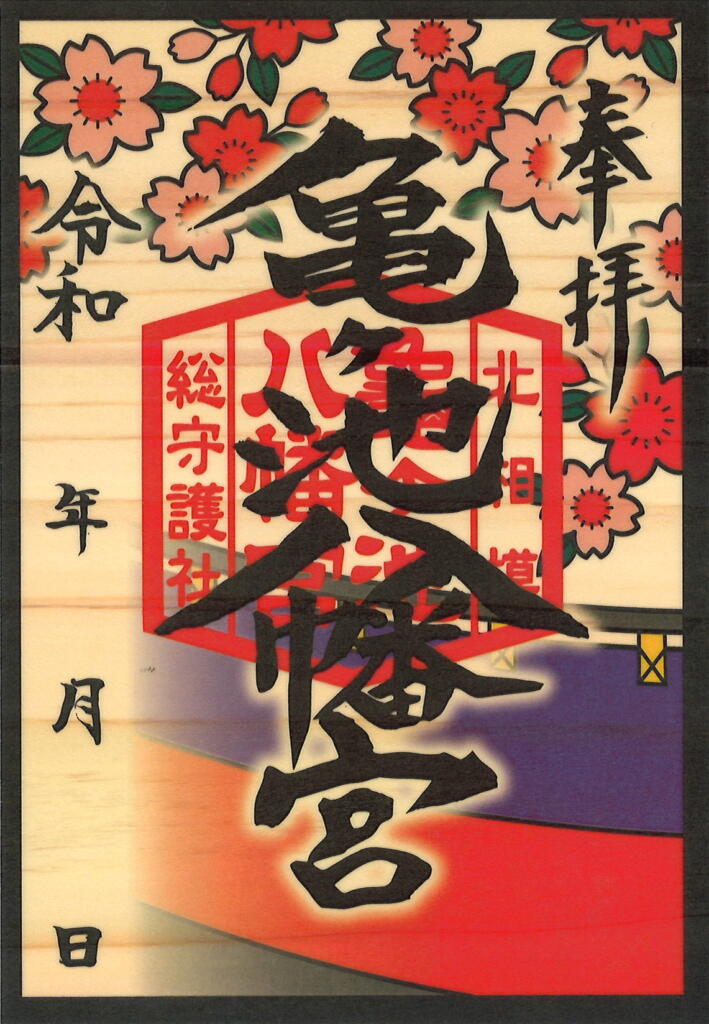 奉拝
北相模
亀ヶ池
八幡宮
総守護社
亀ヶ池八幡宮
令和 年 月 日